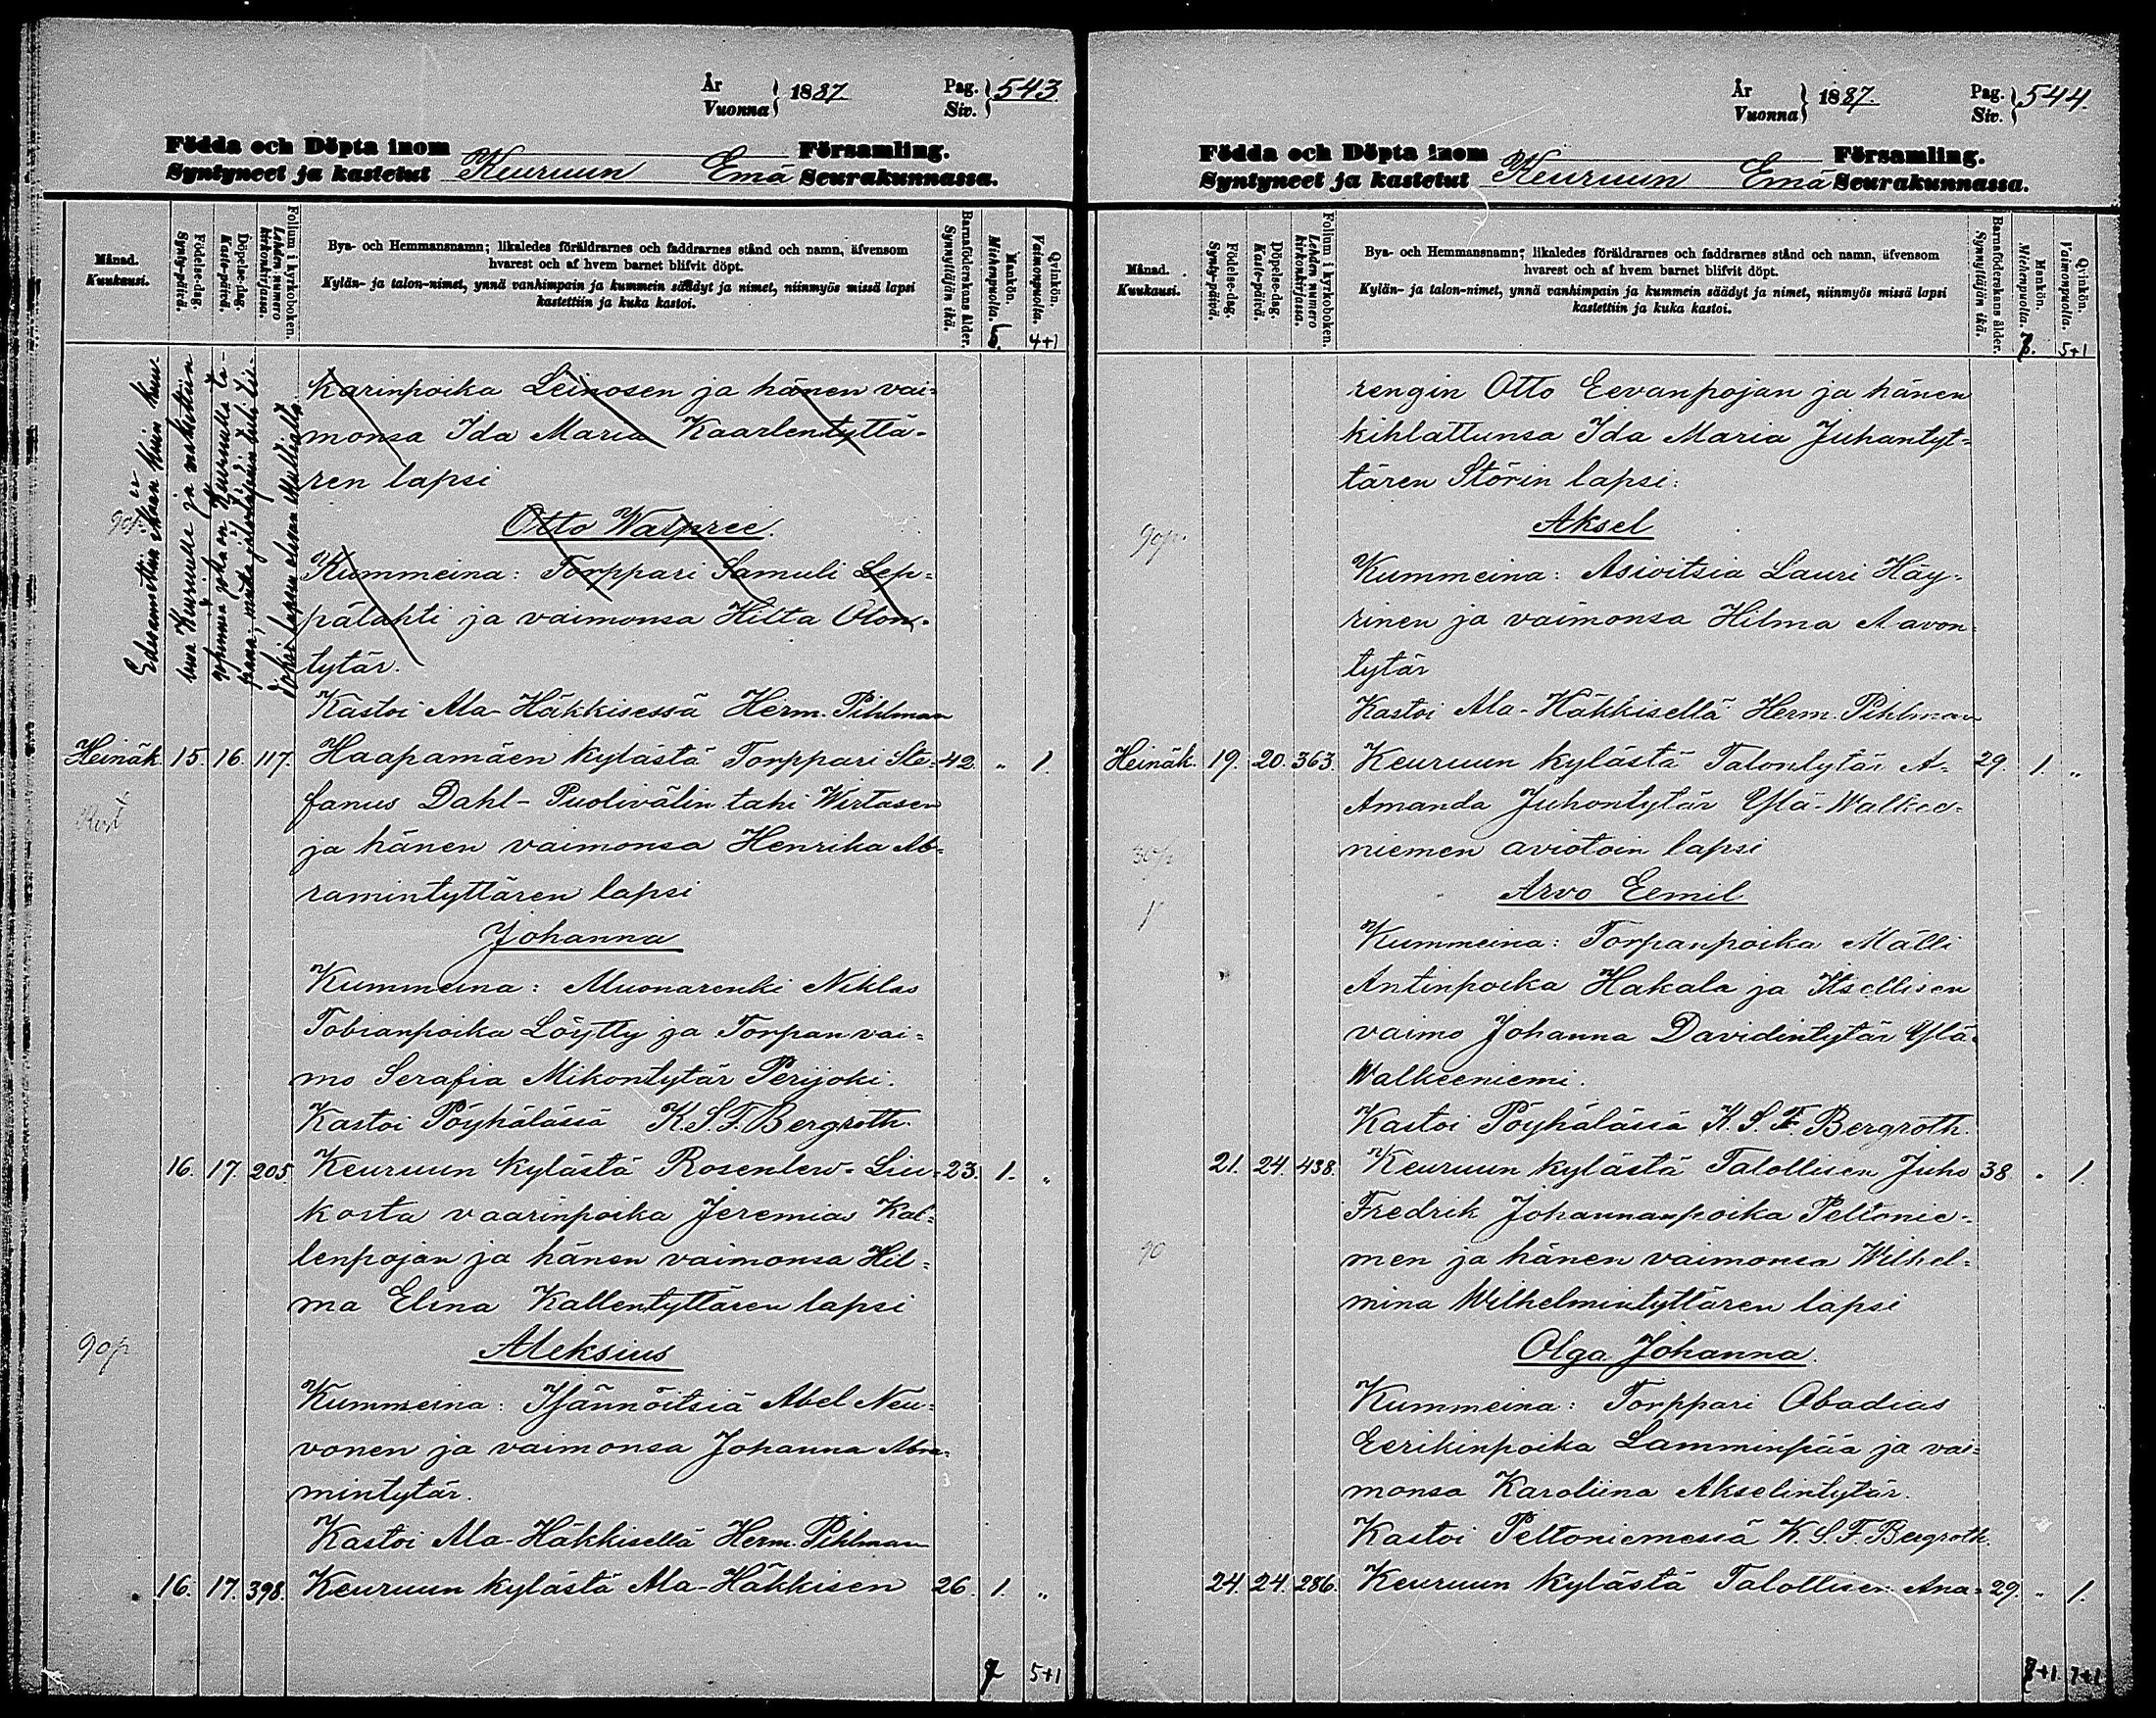 År
Vuonna
1887
Pag.
Siv.
543
Födda och Döpta inom Församling.
Syntyneet ja kastetut Keuruun Emä Seurakunnassa.
Månad.
Kuukausi.
Födelse-dag.
Synty-päivä.
Döpelse-dag.
Kaste-päivä.
Folium i kyrkoboken.
Lehden numero kirkonkirjassa.
Bya- och Hemmansnamn; likaledes föräldrarnes och faddrarnes stånd och namn, äfvensom
hvarest och af hvem barnet blifvit döpt.
Kylän- ja talon-nimet, ynnä vanhimpain ja kummein säädyt ja nimet, niinmyös missä lapsi
kastettiin ja kuka kastoi.
Barnaföderskans ålder.
Synnyttäjän ikä.
Mankön.
Miehenpuolta.
Qvinkön.
Vaimonpuolta.
6. 4+1
karinpoika Leinosen ja hänen vai=
monsa Ida Maria Kaarlentyttä=
ren lapsi
Otto Walfree.
Kummeina: Torppari Samuli Lep=
pälahti ja vaimonsa Hilta Oton=
tytär.
Kastoi Ala-Häkkisessä Herm. Pihlman
Heinäk. 15. 16. 117. Haapamäen kylästä Torppari Ste= 42. " 1.
fanus Dahl-Puolivälin tahi Wirtasen
ja hänen vaimonsa Henrika Ab=
ramintyttären lapsi
Johanna
Kummeina: Muonarenki Niklas
Tobianpoika Löytty ja Torpan vai=
mo Serafia Mikontytär Perijoki.
Kastoi Pöyhälässä K.S.F. Bergroth.
16. 17. 205. Keuruun kylästä Rosenlew-Liu= 23. 1. "
kosta vaarinpoika Jeremias Kal=
lenpojan ja hänen vaimonsa Hil=
ma Elina Kallentyttären lapsi
90p
Aleksius
Kummeina: Isännöitsiä Abel Neu=
vonen ja vaimonsa Johanna Abra=
mintytär.
Kastoi Ala-Häkkisellä Herm. Pihlman
16. 17. 398. Keuruun kylästä Ala-Häkkisen 26. 1. "
7 5+1
År
Vuonna
1887.
Pag.
Siv.
544.
Födda och Döpta inom Församling.
Syntyneet ja kastetut Keuruun Emä Seurakunnassa.
Månad.
Kuukausi.
Födelse-dag.
Synty-päivä.
Döpelse-dag.
Kaste-päivä.
Folium i kyrkoboken.
Lehden numero kirkonkirjassa.
Bya- och Hemmansnamn; likaledes föräldrarnes och faddrarnes stånd och namn, äfvensom
hvarest och af hvem barnet blifvit döpt.
Kylän- ja talon-nimet, ynnä vanhimpain ja kummein säädyt ja nimet, niinmyös missä lapsi
kastettiin ja kuka kastoi.
Barnaföderskans ålder.
Synnyttäjän ikä.
Mankön.
Miehenpuolta.
Qvinkön.
Vaimonpuolta.
7. 5+1
rengin Otto Eevanpojan ja hänen
kihlattunsa Ida Maria Juhantyt=
tären Störin lapsi:
Aksel
90p.
Kummeina: Asioitsia Lauri Häy=
rinen ja vaimonsa Hilma Aavon=
tytär
Kastoi Ala-Häkkisellä Herm. Pihlman
Heinäk. 19. 20. 363. Keuruun kylästä Talontytär A= 29. 1. "
Amanda Juhontytär Ylä-Walkee=
niemen aviotoin lapsi
Arvo Eemil
Kummeina: Torpanpoika Mälli
Antinpoika Hakala ja Itsellisen
vaimo Johanna Davidintytär Ylä-
Walkeeniemi.
Kastoi Pöyhälässä K.S.F. Bergroth.
21. 24. 438. Keuruun kylästä Talollisen Juho 38 " 1.
Fredrik Johannanpoika Peltonie=
men ja hänen vaimonsa Wilhel=
mina Wilhelmintyttären lapsi
90
Olga Johanna.
Kummeina: Torppari Obadias
Eerikinpoika Lamminpää ja vai=
monsa Karoliina Akselintytär.
Kastoi Peltoniemessä K.S.F. Bergroth.
24. 24. 286. Keuruun kylästä Talollisen Ana= 29. " 1.
7+1 7+1